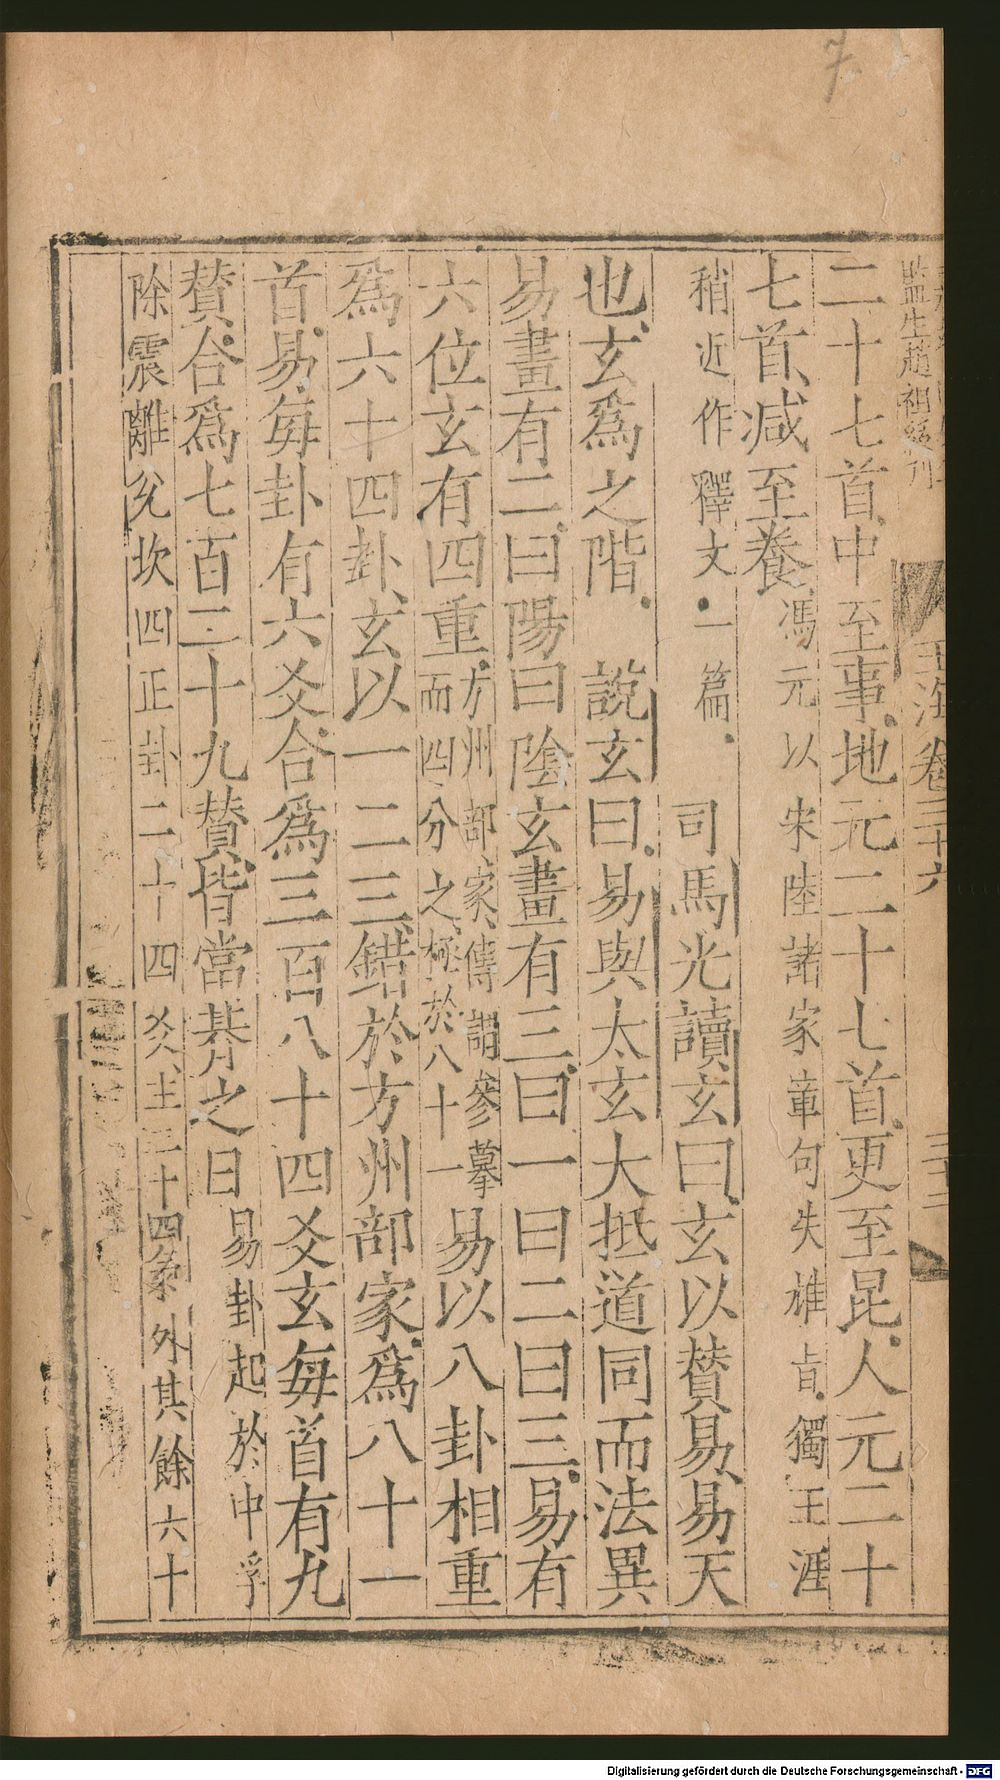 7
監生趙祖
玉海卷三十六
二十七首中至事地元二十七首更至昆人元二十
七首減至養馮元以宋陸諸家章句失雄㫖獨王涯
稍近作釋文一篇 司馬光讀玄曰玄以賛易易天
也玄爲之階 說玄曰易與太玄大抵道同而法異
易畫有二曰陽曰陰玄畫有三曰一曰二曰三易有
六位玄有四重方州部家傳謂參摹而四分之極於八十一易以八卦相重
爲六十四卦玄以一二三錯於方州部家爲八十一
首易每卦有六爻合爲三百八十四爻玄每首有九
賛合爲七百二十九賛皆當朞之日易卦起於中孚
除震離兊坎四正卦二十四爻主二十四氣外其餘六十
Digitalisierung gefördert durch die Deutsche Forschungsgemeinschaft - DFG